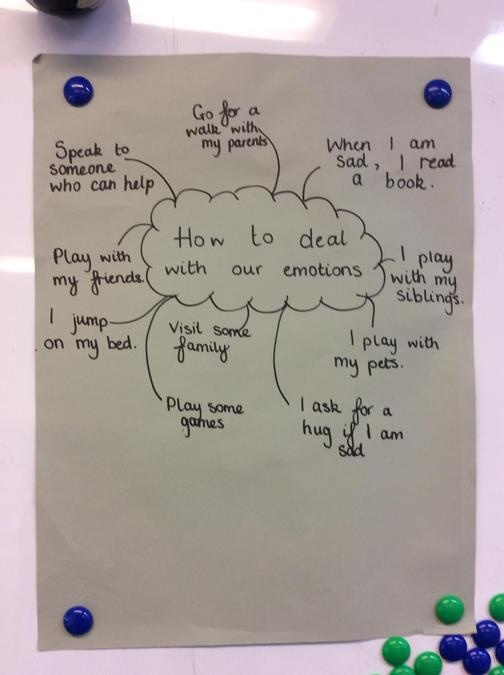 Go for a
walk with
my parents
Speak to
someone
who can help
When I am
sad, I read
a book.
How to deal
with our emotions
Play with
my friends.
I play
with my
siblings.
I jump
on my bed.
Visit some
family
I play with
my pets.
Play some
games
I ask for a
hug if I am
sad